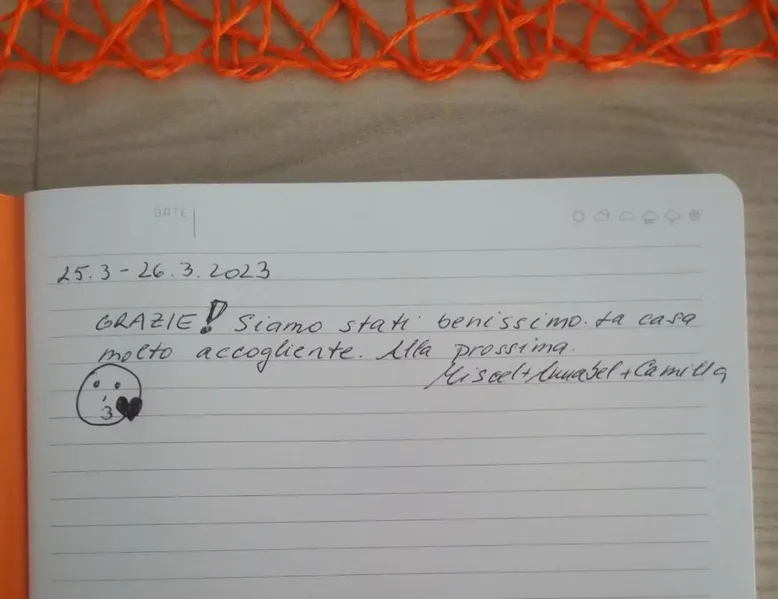 DATE
25.3 - 26.3.2023
GRAZIE! Siamo stati benissimo. La casa
molto accogliente. Alla prossima.
Miscel + Annabel + Camilla